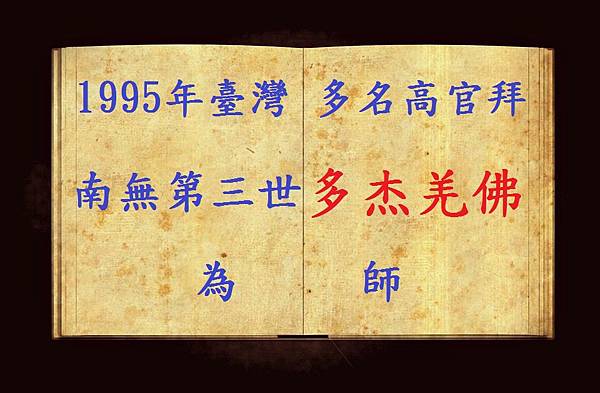 1995年臺灣 多名高官拜
南無第三世多杰羌佛
為師